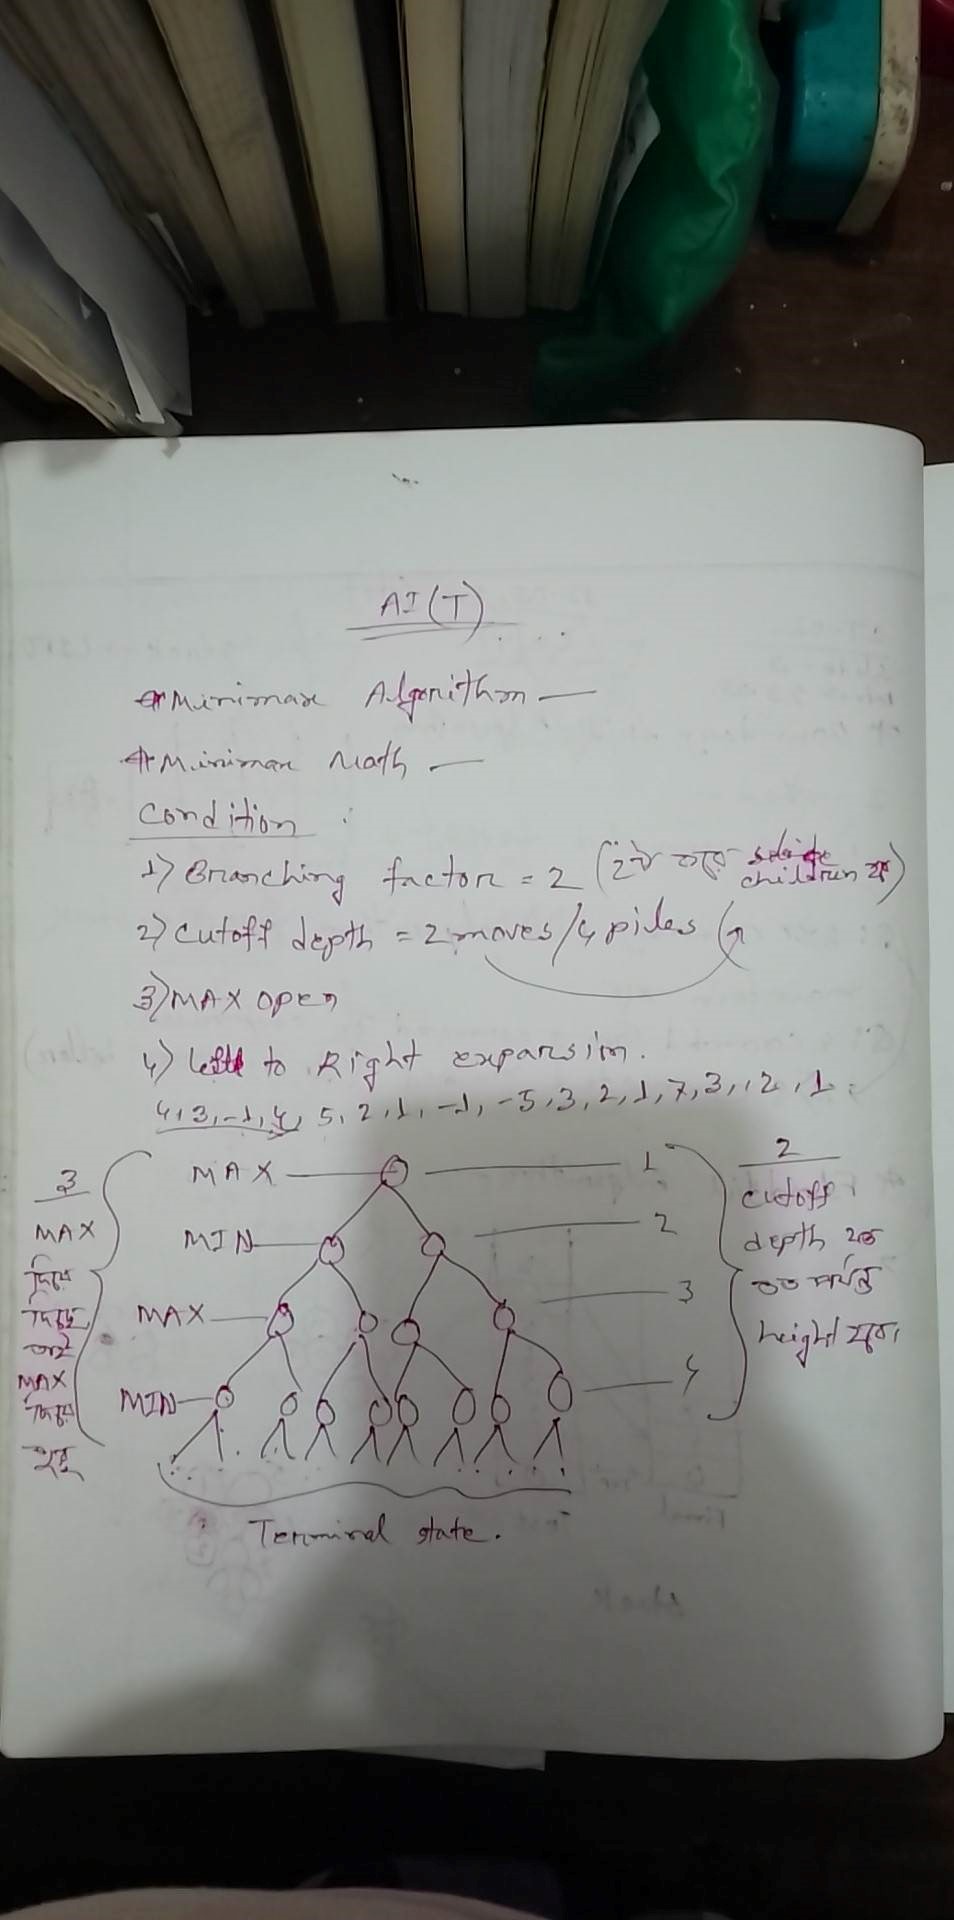 AI(T)
* Minimax Algorithm —
* Minimax Math —
Condition :
1) Branching factor = 2 (2টি করে children হবে)
2) Cutoff depth = 2 moves/4 piles
3) MAX open
4) Left to Right expansion.
4,3,-1,4, 5,2,1,-1,-5,3,2,1,7,3,2,1.
MAX 1
MIN 2
MAX 3
MIN 4
3
MAX
দিয়ে
MAX
দিয়ে
শুরু
2
cutoff
depth
পর্যন্ত
height হবে।
Terminal state.